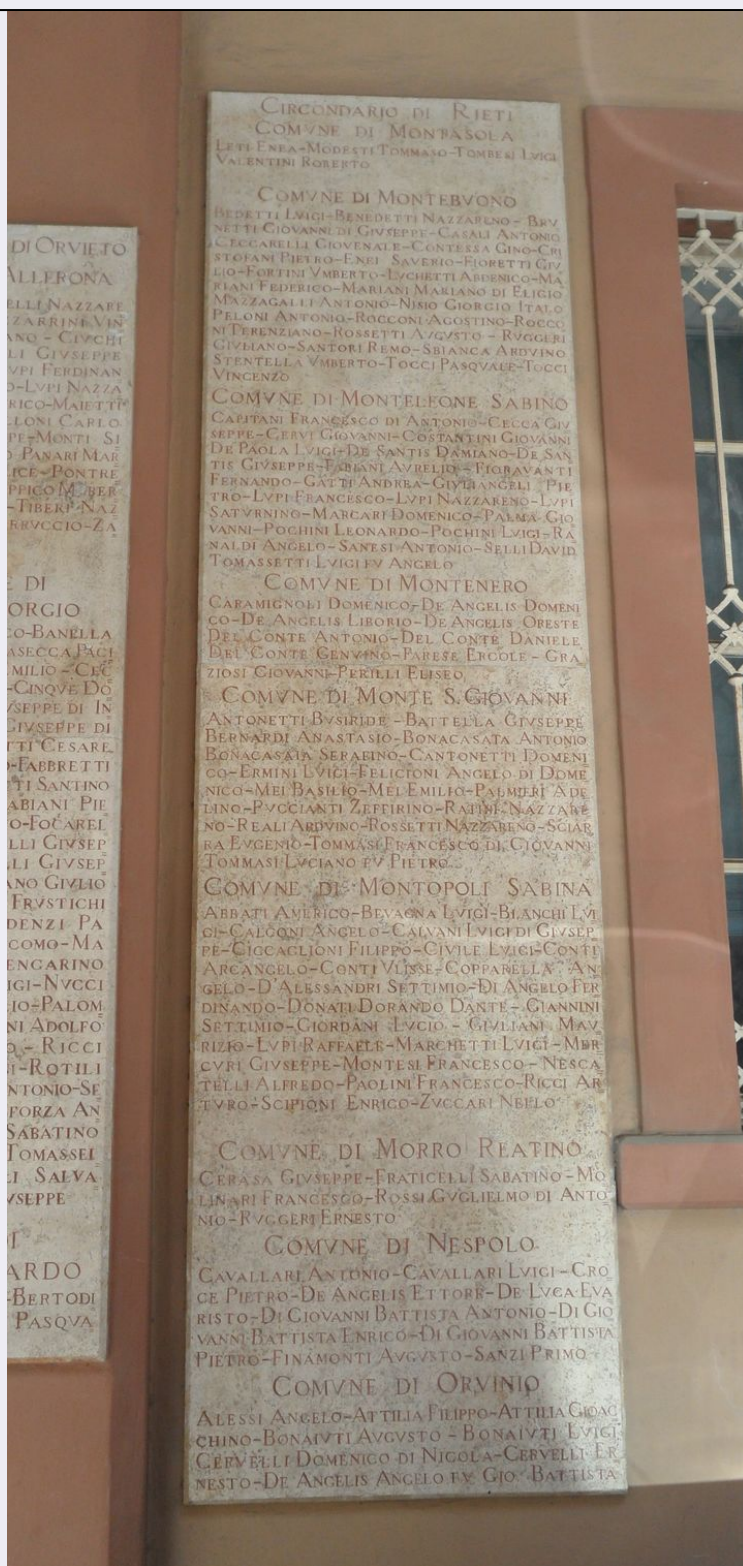 DI ORVIETO
ALLERONA
ELLI NAZZARE
ZZARRINI VIN
ANO - CIVCHI
LI GIVSEPPE
VPI FERDINAN
O-LVPI NAZZA
RICO-MAIETTI
LLONI CARLO
PE-MONTI SI
O PANARI MAR
LICE-PONTRE
-TIBERI-NAZ
ERRVCCIO-ZA
E DI
IORGIO
CO-BANELLA
ASECCA PACI
EMILIO-CEC
-CINQVE DO
VSEPPE DI IN
GIVSEPPE DI
TTI CESARE
O-FABBRETTI
TI SANTINO
ABIANI PIE
O-FOCAREL
LLI GIVSEP
LLI GIVSEP
ANO GIVLIO
FRVSTICHI
DENZI PA
COMO-MA
ENGARINO
IGI-NVCCI
IO-PALOM
NI ADOLFO
O-RICCI
I-ROTILI
NTONIO-SE
FORZA AN
SABATINO
TOMASSEI
LI SALVA
VSEPPE
DI
ARDO
-BERTODI
PASQVA
CIRCONDARIO DI RIETI
COMVNE DI MONTASOLA
LETI ENEA-MODESTI TOMMASO-TOMBESI LVIGI
VALENTINI ROBERTO
COMVNE DI MONTEBVONO
BEDETTI LVIGI-BENEDETTI NAZZARENO-BRV
NETTI GIOVANNI DI GIVSEPPE-CASALI ANTONIO
CECCARELLI GIOVENALE-CONTESSA GINO-CRI
STOFANI PIETRO-ENEI SAVERIO-FIORETTI GIV
LIO-FORTINI VMBERTO-LVCHETTI ABDENICO-MA
RIANI FEDERICO-MARIANI MARIANO DI ELIGIO
MAZZAGALLI ANTONIO-NISIO GIORGIO ITALO
PELONI ANTONIO-ROCCONI AGOSTINO-ROCCO
NI TERENZIANO-ROSSETTI AVGVSTO-RVGGERI
GIVLIANO-SANTORI REMO-SBIANCA ARDVINO
STENTELLA VMBERTO-TOCCI PASQVALE-TOCCI
VINCENZO
COMVNE DI MONTELEONE SABINO
CAPITANI FRANCESCO DI ANTONIO-CECCA GIV
SEPPE-CERVI GIOVANNI-COSTANTINI GIOVANNI
DE PAOLA LVIGI-DE SANTIS DAMIANO-DE SAN
TIS GIVSEPPE-FABIANI AVRELIO-FIORAVANTI
FERNANDO-GATTI ANDREA-GIVLIANGELI PIE
TRO-LVPI FRANCESCO-LVPI NAZZARENO-LVPI
SATVRNINO-MARCARI DOMENICO-PALMA GIO
VANNI-POCHINI LEONARDO-POCHINI LVIGI-RA
NALDI ANGELO-SANESI ANTONIO-SELLI DAVID
TOMASSETTI LVIGI FV ANGELO
COMVNE DI MONTENERO
CARAMIGNOLI DOMENICO-DE ANGELIS DOMENI
CO-DE ANGELIS LIBORIO-DE ANGELIS ORESTE
DEL CONTE ANTONIO-DEL CONTE DANIELE
DEL CONTE GENVINO-PARESE ERCOLE-GRA
ZIOSI GIOVANNI-PERILLI ELISEO
COMVNE DI MONTE S. GIOVANNI
ANTONETTI BVSIRIDE-BATTELLA GIVSEPPE
BERNARDI ANASTASIO-BONACASATA ANTONIO
BONACASATA SERAFINO-CANTONETTI DOMENI
CO-ERMINI LVIGI-FELICIONI ANGELO DI DOME
NICO-MEI BASILIO-MEI EMILIO-PALMIERI ADE
LINO-PVCCIANTI ZEFFIRINO-RATINI NAZZARE
NO-REALI ARDVINO-ROSSETTI NAZZARENO-SCIAR
RA EVGENIO-TOMMASI FRANCESCO DI GIOVANNI
TOMMASI LVCIANO FV PIETRO
COMVNE DI MONTOPOLI SABINA
ABBATI AMERICO-BEVAGNA LVIGI-BIANCHI LVI
GI-CALCONI ANGELO-CALVANI LVIGI DI GIVSEP
PE-CICCAGLIONI FILIPPO-CIVILE LVIGI-CONTI
ARCANGELO-CONTI VLISSE-COPPARELLA AN
GELO-D'ALESSANDRI SETTIMIO-DI ANGELO FER
DINANDO-DONATI DORANDO DANTE-GIANNINI
SETTIMIO-GIORDANI LVCIO-GIVLIANI MAV
RIZIO-LVPI RAFFAELE-MARCHETTI LVIGI-MER
CVRI GIVSEPPE-MONTESI FRANCESCO-NESCA
TELLI ALFREDO-PAOLINI FRANCESCO-RICCI AR
TVRO-SCIPIONI ENRICO-ZVCCARI NELLO
COMVNE DI MORRO REATINO
CERASA GIVSEPPE-FRATICELLI SABATINO-MO
LINARI FRANCESCO-ROSSI GVGLIELMO DI ANTO
NIO-RVGGERI ERNESTO
COMVNE DI NESPOLO
CAVALLARI ANTONIO-CAVALLARI LVIGI-CRO
CE PIETRO-DE ANGELIS ETTORE-DE LVCA EVA
RISTO-DI GIOVANNI BATTISTA ANTONIO-DI GIO
VANNI BATTISTA ENRICO-DI GIOVANNI BATTISTA
PIETRO-FINAMONTI AVGVSTO-SANZI PRIMO
COMVNE DI ORVINIO
ALESSI ANGELO-ATTILIA FILIPPO-ATTILIA GIOAC
CHINO-BONAIVTI AVGVSTO-BONAIVTI LVIGI
CERVELLI DOMENICO DI NICOLA-CERVELLI ER
NESTO-DE ANGELIS ANGELO FV GIO. BATTISTA